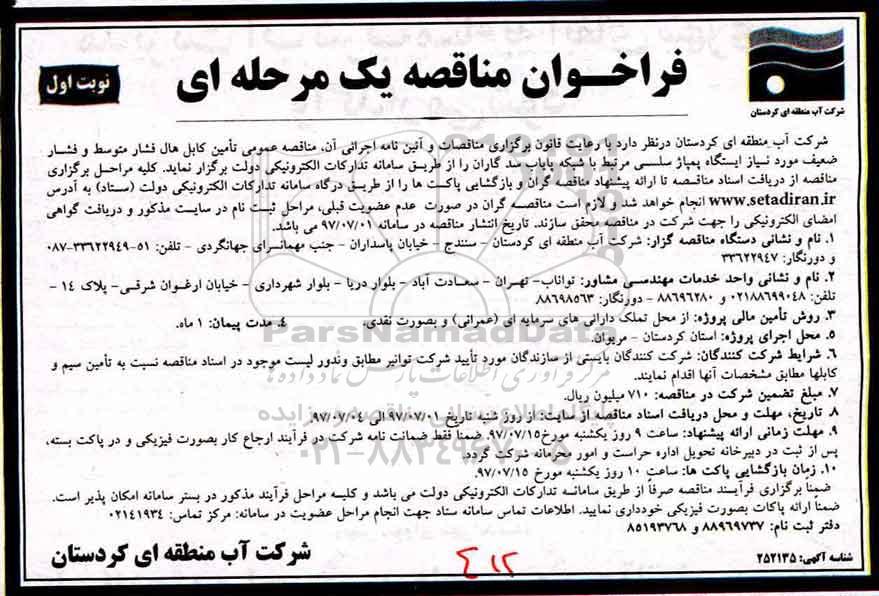 شرکت آب منطقه ای کردستان
فراخـــوان مناقصه یک مرحله ای
نوبت اول
شرکت آب منطقه ای کردستان درنظر دارد با رعایت قانون برگزاری مناقصات و آئین نامه اجرائی آن، مناقصه عمومی تأمین کابل های فشار متوسط و فشار
ضعیف مورد نیاز ایستگاه پمپاژ سلسی مرتبط با شبکه پایاب سد گاران را از طریق سامانه تدارکات الکترونیکی دولت برگزار نماید. کلیه مراحل برگزاری
مناقصه از دریافت اسناد مناقصه تا ارائه پیشنهاد مناقصه گران و بازگشایی پاکت ها را از طریق درگاه سامانه تدارکات الکترونیکی دولت (ستاد) به آدرس
www.setadiran.ir انجام خواهد شد و لازم است مناقصه گران در صورت عدم عضویت قبلی، مراحل ثبت نام در سایت مذکور و دریافت گواهی
امضای الکترونیکی را جهت شرکت در مناقصه محقق سازند. تاریخ انتشار مناقصه در سامانه ۹۷/۰۷/۰۱ می باشد.
۱. نام و نشانی دستگاه مناقصه گزار: شرکت آب منطقه ای کردستان - سنندج - خیابان پاسداران - جنب مهمانسرای جهانگردی - تلفن: ۵۱-۳۳۶۲۲۹۴۹-۰۸۷
و دورنگار: ۳۳۶۲۲۹۴۷
۲. نام و نشانی واحد خدمات مهندسی مشاور: تواناب- تهران - سعادت آباد - بلوار دریا - بلوار شهرداری - خیابان ارغوان شرقی- پلاک ۱۴ -
تلفن: ۰۲۱۸۸۶۹۹۰۴۸ و ۸۸۶۹۶۲۸۰ - دورنگار: ۸۸۶۹۸۵۶۳
۳. روش تأمین مالی پروژه: از محل تملک دارائی های سرمایه ای (عمرانی) و بصورت نقدی. ۴. مدت پیمان: ۱ ماه.
۵. محل اجرای پروژه: استان کردستان - مریوان.
۶. شرایط شرکت کنندگان: شرکت کنندگان بایستی از سازندگان مورد تأیید شرکت توانیر مطابق وندور لیست موجود در اسناد مناقصه نسبت به تأمین سیم و
کابلها مطابق مشخصات آنها اقدام نمایند.
۷. مبلغ تضمین شرکت در مناقصه: ۷۱۰ میلیون ریال.
۸. تاریخ، مهلت و محل دریافت اسناد مناقصه از سایت: از روز شنبه تاریخ ۹۷/۰۷/۰۱ الی ۹۷/۰۷/۰۴.
۹. مهلت زمانی ارائه پیشنهاد: ساعت ۹ روز یکشنبه مورخ ۹۷/۰۷/۱۵. ضمناً فقط ضمانت نامه شرکت در فرآیند ارجاع کار بصورت فیزیکی و در پاکت بسته،
پس از ثبت در دبیرخانه تحویل اداره حراست و امور محرمانه شرکت گردد.
۱۰. زمان بازگشایی پاکت ها: ساعت ۱۰ روز یکشنبه مورخ ۹۷/۰۷/۱۵.
ضمناً برگزاری فرآیند مناقصه صرفاً از طریق سامانه تدارکات الکترونیکی دولت می باشد و کلیه مراحل فرآیند مذکور در بستر سامانه امکان پذیر است.
ضمناً ارائه پاکات بصورت فیزیکی خودداری نمایید. اطلاعات تماس سامانه ستاد جهت انجام مراحل عضویت در سامانه: مرکز تماس: ۰۲۱۴۱۹۳۴
دفتر ثبت نام: ۸۸۹۶۹۷۳۷ و ۸۵۱۹۳۷۶۸
شناسه آگهی: ۲۵۲۱۳۵
شرکت آب منطقه ای کردستان
ParsNamadData